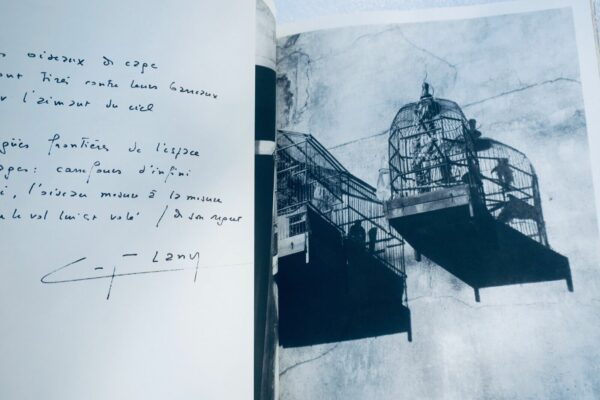 oiseaux de cage
ont tirés contre leurs barreaux
r l'aimant du ciel
frontières de l'espace
ages : carrefours d'infini
, l'oiseau mesure à la mesure
le vol lui est volé / de son regard
Lany